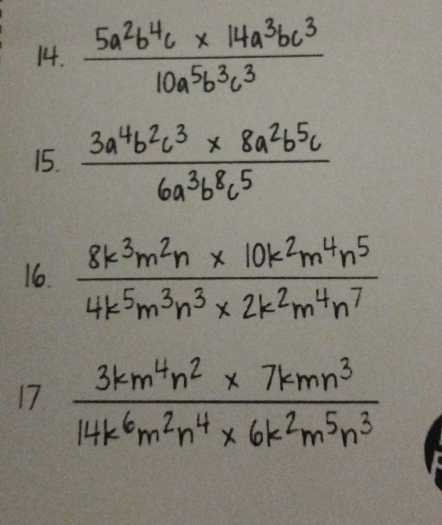 14. 5a²b⁴c × 14a³bc³
10a⁵b³c³
15. 3a⁴b²c³ × 8a²b⁵c
6a³b⁸c⁵
16. 8k³m²n × 10k²m⁴n⁵
4k⁵m³n³ × 2k²m⁴n⁷
17 3km⁴n² × 7kmn³
14k⁶m²n⁴ × 6k²m⁵n³